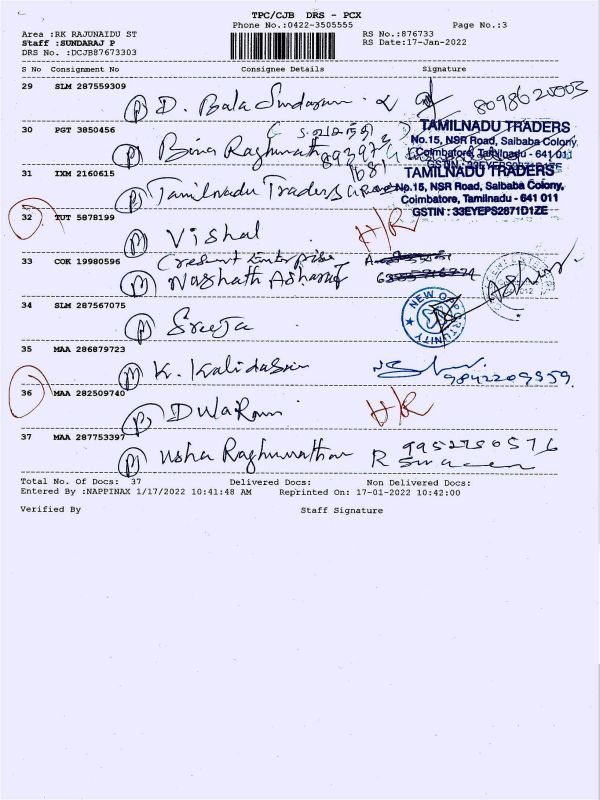 TPC/CJB DRS - PCX
Phone No.:0422-3505555
Page No.:3
Area :RK RAJUNAIDU ST
RS No.:876733
Staff :SUNDARAJ P
RS Date:17-Jan-2022
DRS No. :DCJB87673303
S No Consignment No Consignee Details Signature
29 SLM 287559309
D. Bala Sundaram
8098620003
30 PGT 3850456
Bina Raghunath
TAMILNADU TRADERS
No.15, NSR Road, Saibaba Colony,
Coimbatore, Tamilnadu - 641 011
31 IXM 2160615
Tamilnadu Traders
TAMILNADU TRADERS
No.15, NSR Road, Saibaba Colony,
Coimbatore, Tamilnadu - 641 011
GSTIN : 33EYEPS2871D1ZE
32 TUT 5878199
Vishal
H/R
33 COK 19980596
Cresent Enterprise
Nashath Asharaf
34 SLM 287567075
Sreeja
NEW OPPORTUNITY
35 MAA 286879723
K. Kalidasan
9842209559
36 MAA 282509740
DulaRam
H/R
37 MAA 287753397
Usha Raghunathan
9952750576
Total No. Of Docs: 37 Delivered Docs: Non Delivered Docs:
Entered By :NAPPINAX 1/17/2022 10:41:48 AM Reprinted On: 17-01-2022 10:42:00
Verified By Staff Signature